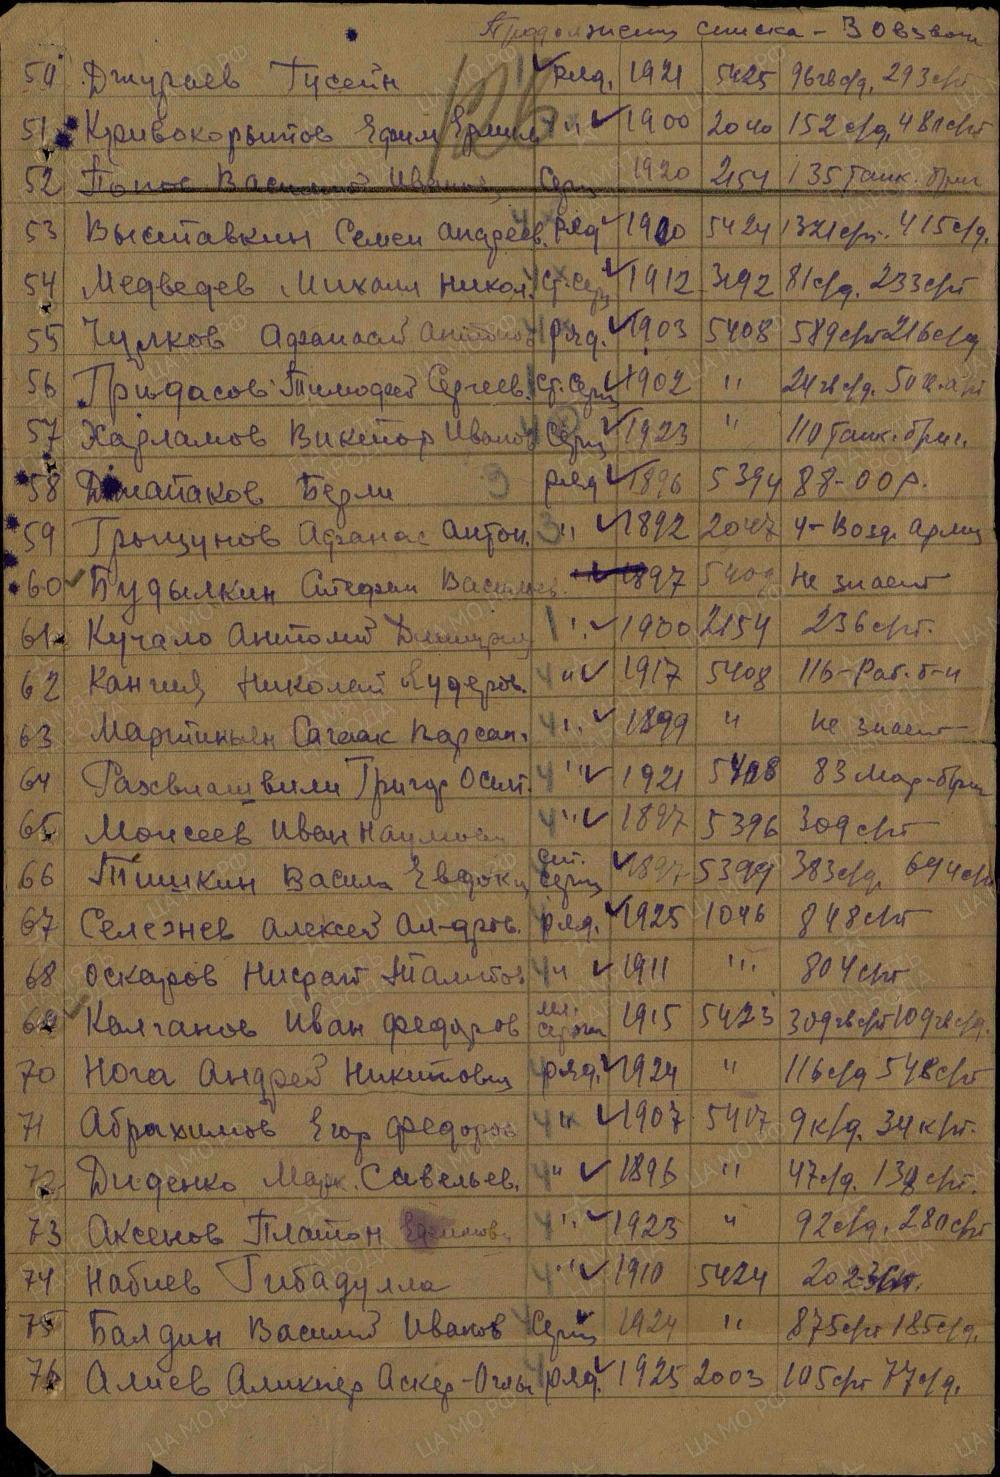 Продолжение списка - 3 0взвош
50 Джураев Гусейн ряд. 1921 5425 96гвсд. 293сп
51 Кривокорытов Ефим Ермил " 1900 2040 152сд, 480сп
52 Попов Василий Иванов Серж 1920 2154 135 Танк. бриг
53 Выставкин Семен Андреев. ряд 1900 5424 1321сп. 415сд.
54 Медведев Михаил Никол. Ст. Серж 1912 3192 81сд. 233сп
55 Чулков Афанасий Антонов ряд. 1903 5408 589сп 216сд
56 Гридасов Тимофей Сергеев. Ст. Серж 1902 " 24гвсд.
57 Харламов Виктор Иванов Серж 1923 " 110 Танк. бриг.
58 Берли ряд 1896 5394 88-ООР.
59 Грыцунов Афанас Антон. " 1892 2047 4-Возд. Армия
60 Будылкин Стефан Васильев. " 1897 5409 Не знает
61 Кучало Антоний " 1900 2154 236сп.
62 Кангия Николай " 1917 5408 116-Раб. б-н
63 Мартиньян Сагаак Карсап. " 1899 " Не знает
64 Григор Осип. " 1921 5408 83 Мор-бриг
65 Моисеев Иван Наумов " 1897 5396 309сп
66 Тишкин Васили Евдоки ст. серж 1897 5399 383сд. 694сп
67 Селезнев Алексей Ал-дров. ряд. 1925 1046 848сп
68 Оскаров Нисрат Талитов " 1911 " 804сп
69 Калганов Иван Федоров мл. сержан 1915 5423 309гвсп 109гвсд.
70 Нога Андрей Никитович ряд. 1924 " 116сд 548сп
71 Абрахимов Егор Федоров " 1907 5417 9ксд. 34ксп.
72 Диденко Марк. Савельев. " 1896 " 47сд. 138сп.
73 Аксенов Платон Ефимов " 1923 " 92сд. 280сп
74 Набиев Гибадулла " 1910 5424
75 Балдин Василий Иванов Серж 1924 " 875сп 185сд.
76 Алиев Аликпер Аскер-Оглы ряд. 1925 2003 105сп 77сд.